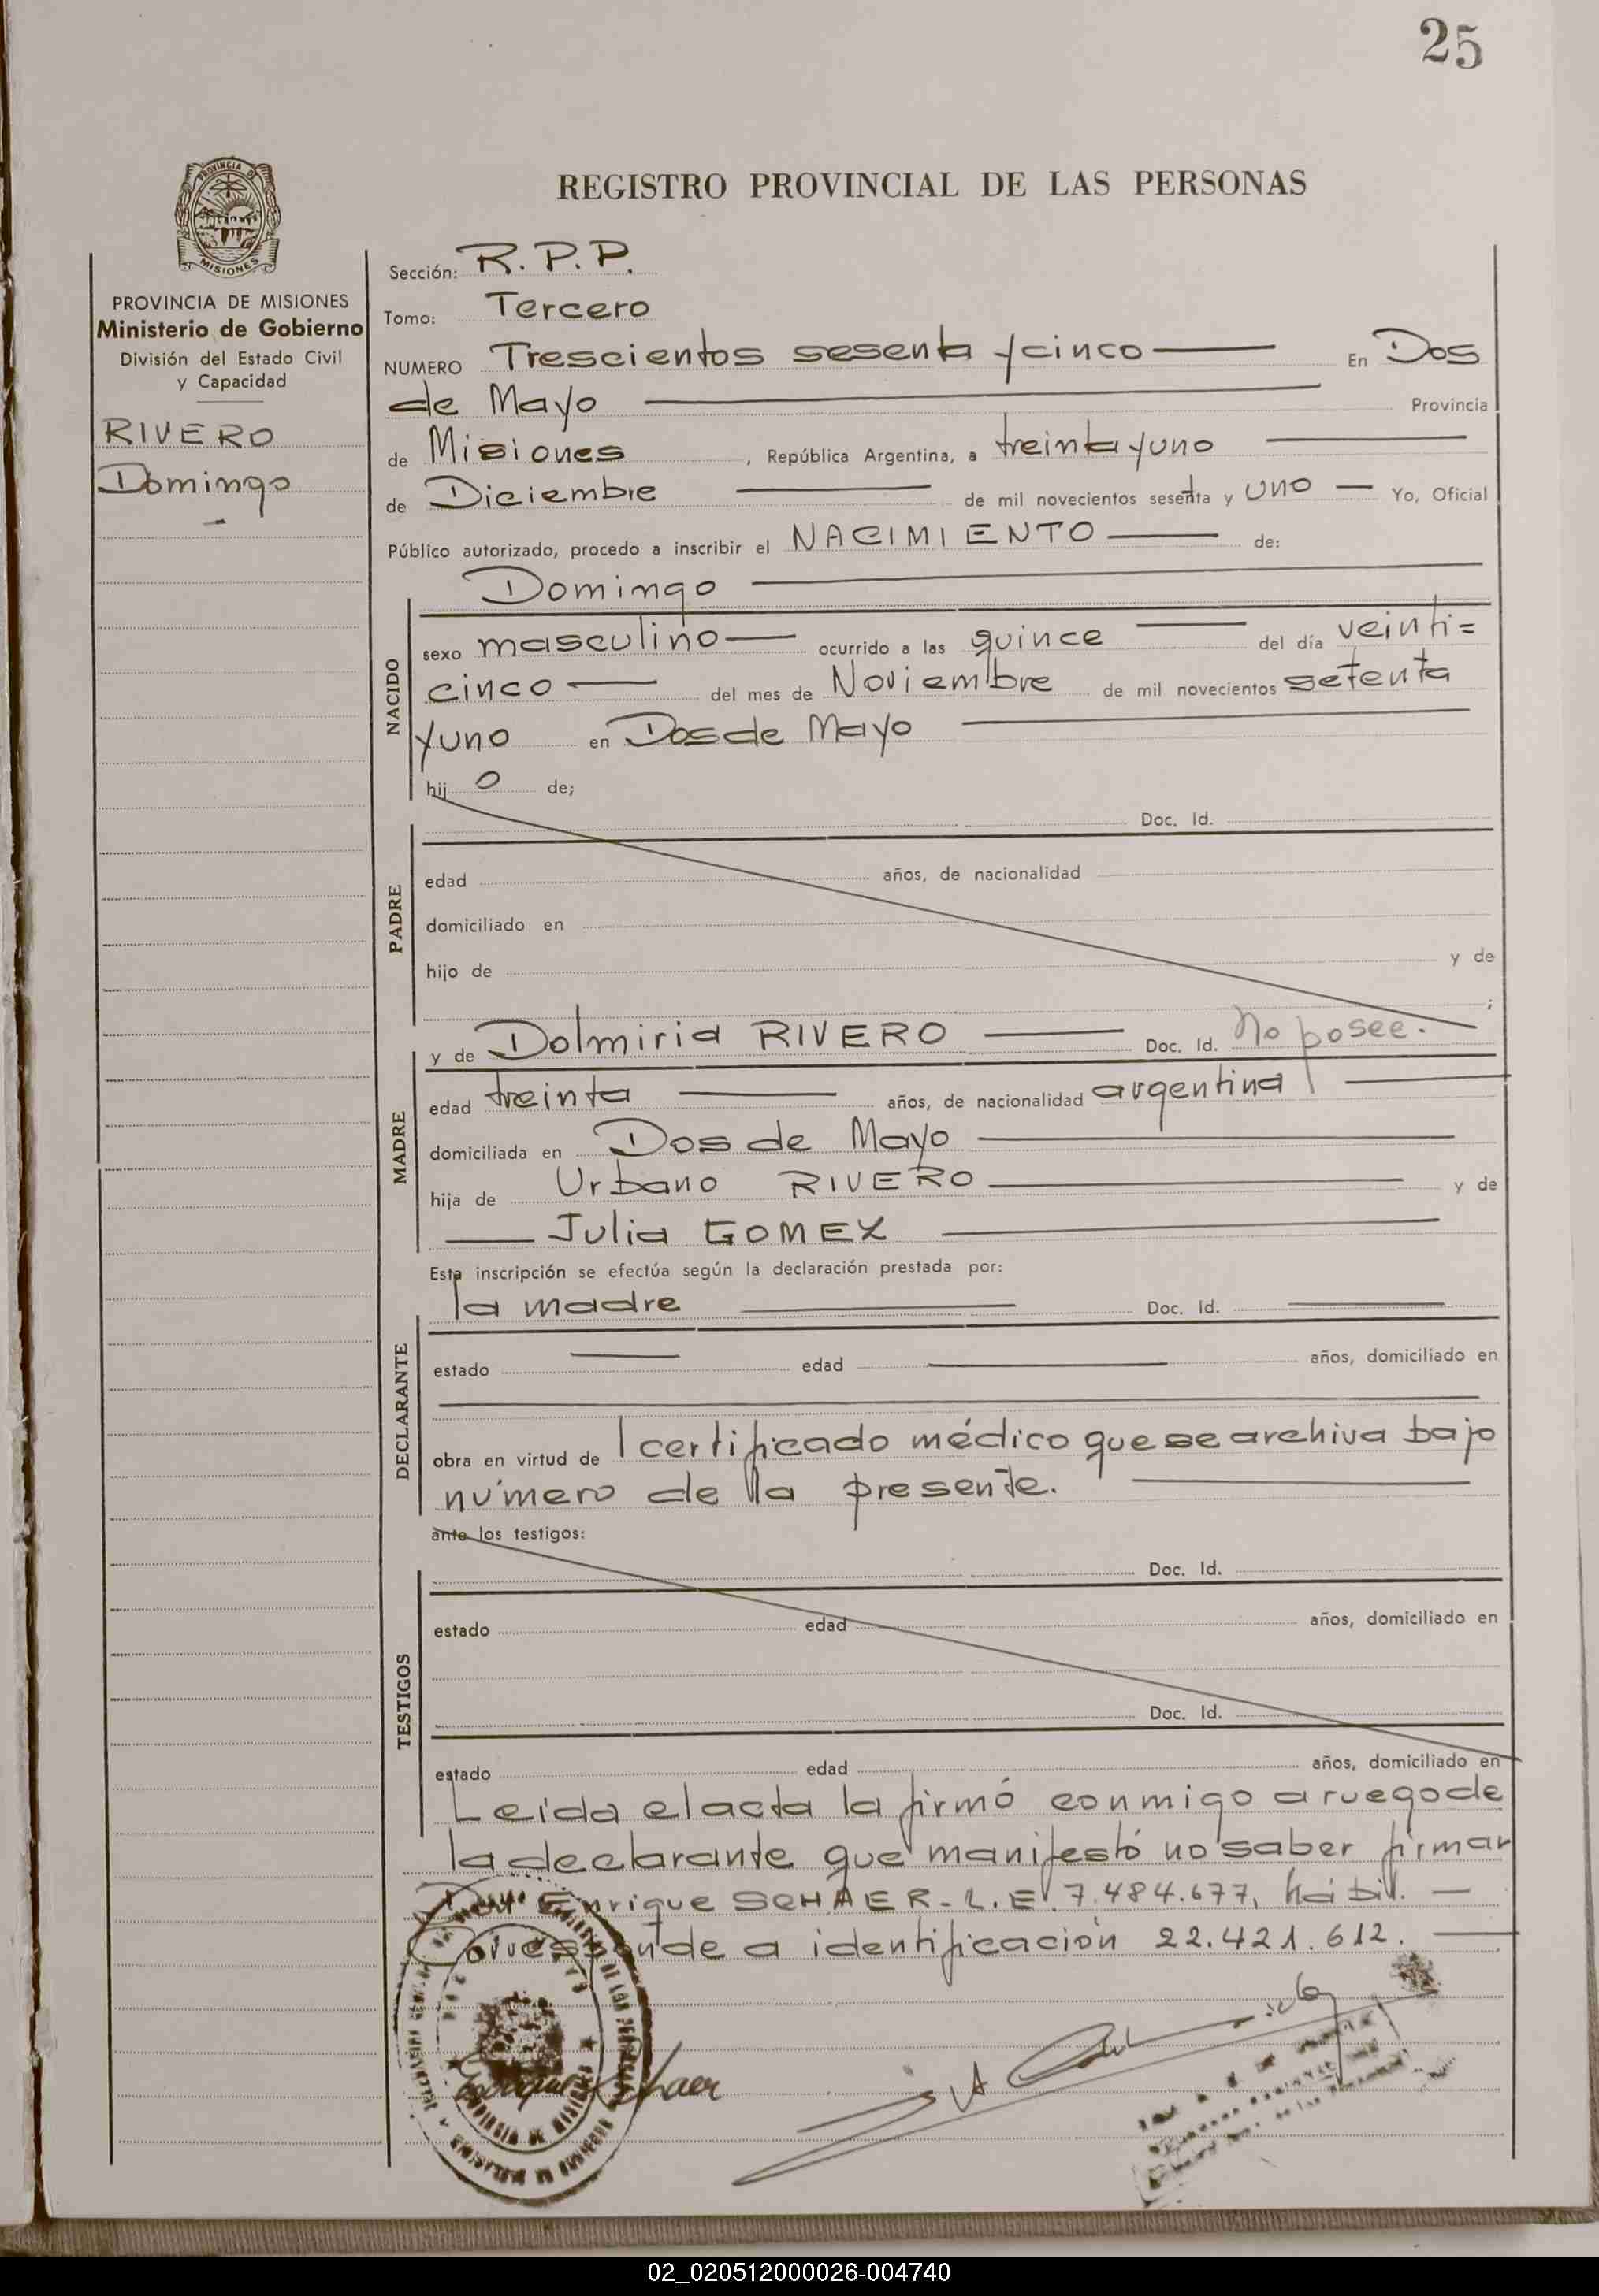 25
PROVINCIA DE
MISIONES
REGISTRO PROVINCIAL DE LAS PERSONAS
PROVINCIA DE MISIONES
Ministerio de Gobierno
División del Estado Civil
y Capacidad
RIVERO
Domingo
Sección: R.P.P.
Tomo: Tercero
NUMERO Trescientos sesenta y cinco En Dos
de Mayo Provincia
de Misiones , República Argentina, a treinta y uno
de Diciembre de mil novecientos sesenta y uno Yo, Oficial
Público autorizado, procedo a inscribir el NACIMIENTO de:
NACIDO
Domingo
sexo masculino ocurrido a las quince del día veinti=
cinco del mes de Noviembre de mil novecientos setenta
y uno en Dos de Mayo
hij o de;
PADRE
Doc. Id.
edad años, de nacionalidad
domiciliado en
hijo de y de
;
MADRE
y de Dolmiria RIVERO Doc. Id. No posee.
edad treinta años, de nacionalidad argentina
domiciliada en Dos de Mayo
hija de Urbano RIVERO y de
Julia GOMEZ
Esta inscripción se efectúa según la declaración prestada por:
DECLARANTE
la madre Doc. Id.
estado edad años, domiciliado en
obra en virtud de certificado médico que se archiva bajo
número de la presente.
ante los testigos:
TESTIGOS
Doc. Id.
estado edad años, domiciliado en
Doc. Id.
estado edad años, domiciliado en
Leida el acta la firmó conmigo a ruego de
la declarante que manifestó no saber firmar
Don Enrique SCHAER - L.E. 7.484.677, hábil.
Corresponde a identificación 22.421.612.
Enrique Schaer
02_020512000026-004740